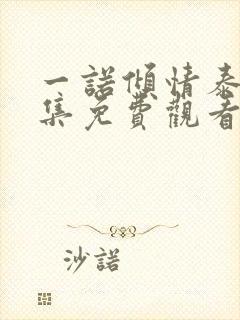 一諾傾情泰
集免費觀看
沙諾